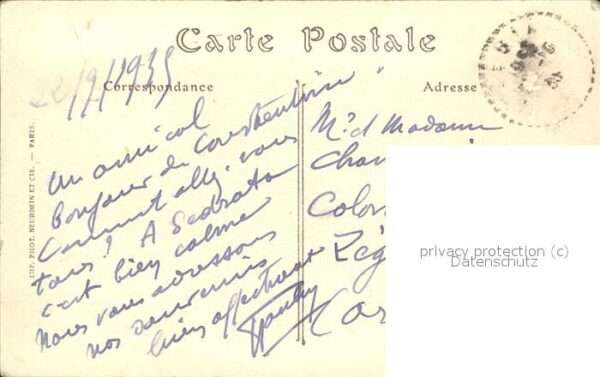 Carte Postale
22/9/1935
Correspondance
Adresse
Un amical
bonjour de Constantine
Comment allez-vous
tous? A Sedrata
c'est bien calme
Nous vous adressons
nos souvenirs
bien affectueux
Mr et Madame
Colon
IMP. PHOT. NEURDEIN ET CIE. — PARIS.
privacy protection (c)
Datenschutz